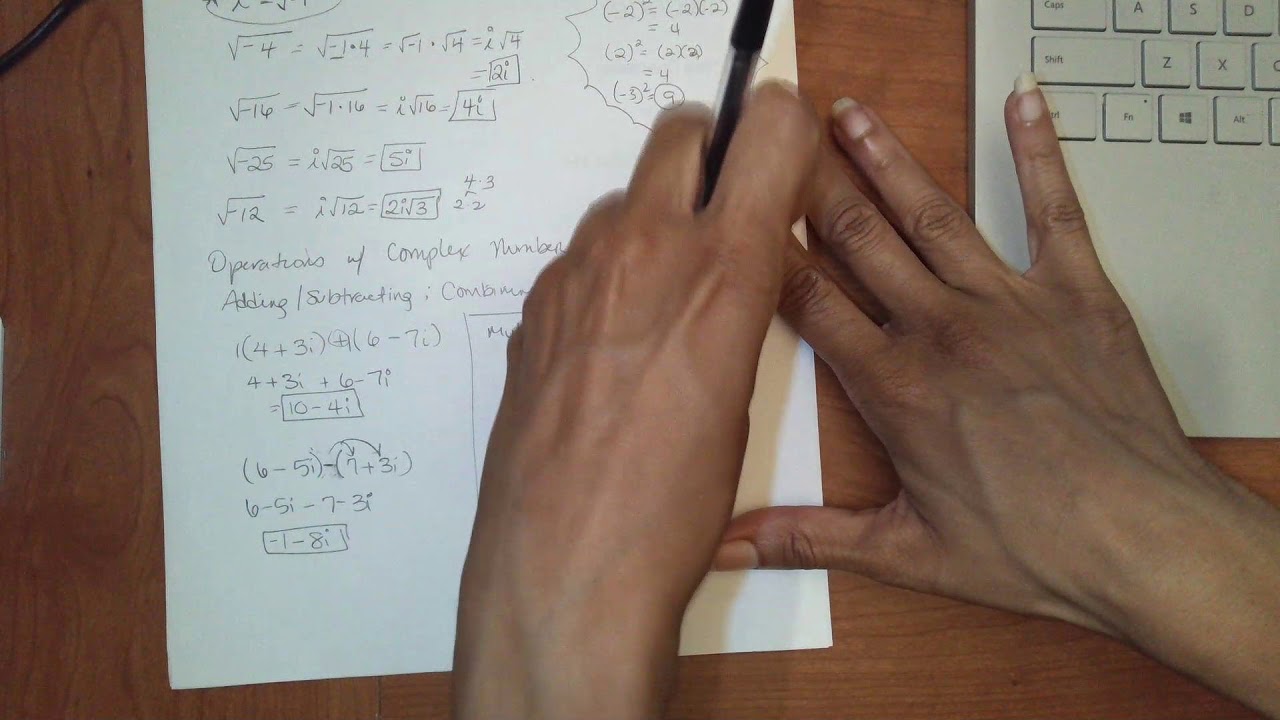 * i = √-1
√-4 = √-1·4 = √-1 · √4 = i√4
= 2i.
√-16 = √-1·16 = i√16 = 4i
√-25 = i√25 = 5i
√-12 = i√12 = 2i√3
4·3
2·2
(-2)² = (-2)(-2)
= 4
(2)² = (2)(2)
= 4
(-3)² = 9
Operations w/ Complex Number
Adding/Subtracting :
1(4 + 3i) + 1(6 - 7i)
4 + 3i + 6 - 7i
= 10 - 4i
(6 - 5i) - (7 + 3i)
6 - 5i - 7 - 3i
-1 - 8i
Caps A S D
Shift Z X C
Fn Alt